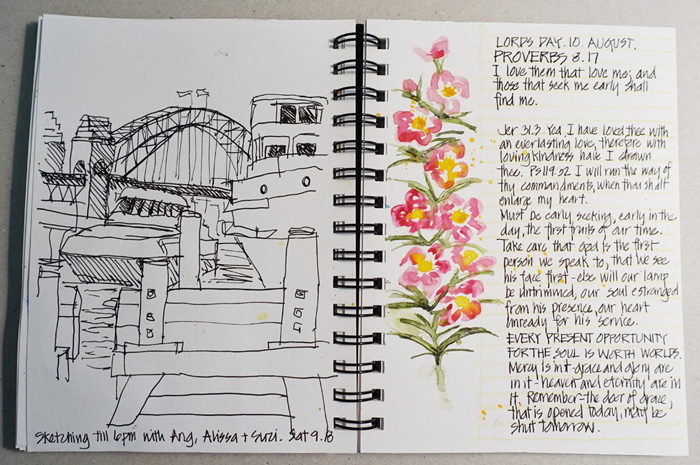 Sketching till 6pm with Ang, Alissa + Suzi. Sat 9.8
LORDS DAY. 10. AUGUST.
PROVERBS 8.17
I love them that love me; and
those that seek me early shall
find me.
Jer 31.3 Yea, I have loved thee with
an everlasting love, therefore with
lovingkindness have I drawn
thee. PS 119.32 I will run the way of
thy commandments, when thou shalt
enlarge my heart.
Must be early seeking, early in the
day, the first fruits of our time.
Take care that God is the first
person we speak to, that we see
his face first - else will our lamp
be untrimmed, our soul estranged
from his presence, our heart
unready for his service.
EVERY PRESENT OPPORTUNITY
FOR THE SOUL IS WORTH WORLDS.
Mercy is in it - grace and glory are
in it - heaven and eternity are in
it. Remember - the door of grace,
that is opened today, may be
shut tomorrow.